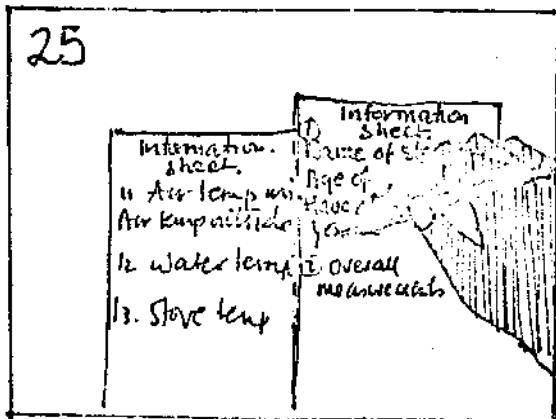 25
Information
sheet.
11 Air temp
Air temp outside
12 Water temp
13. Stove temp
Information
sheet.
1)
Name of
Age of
Have
2 overall
measurements